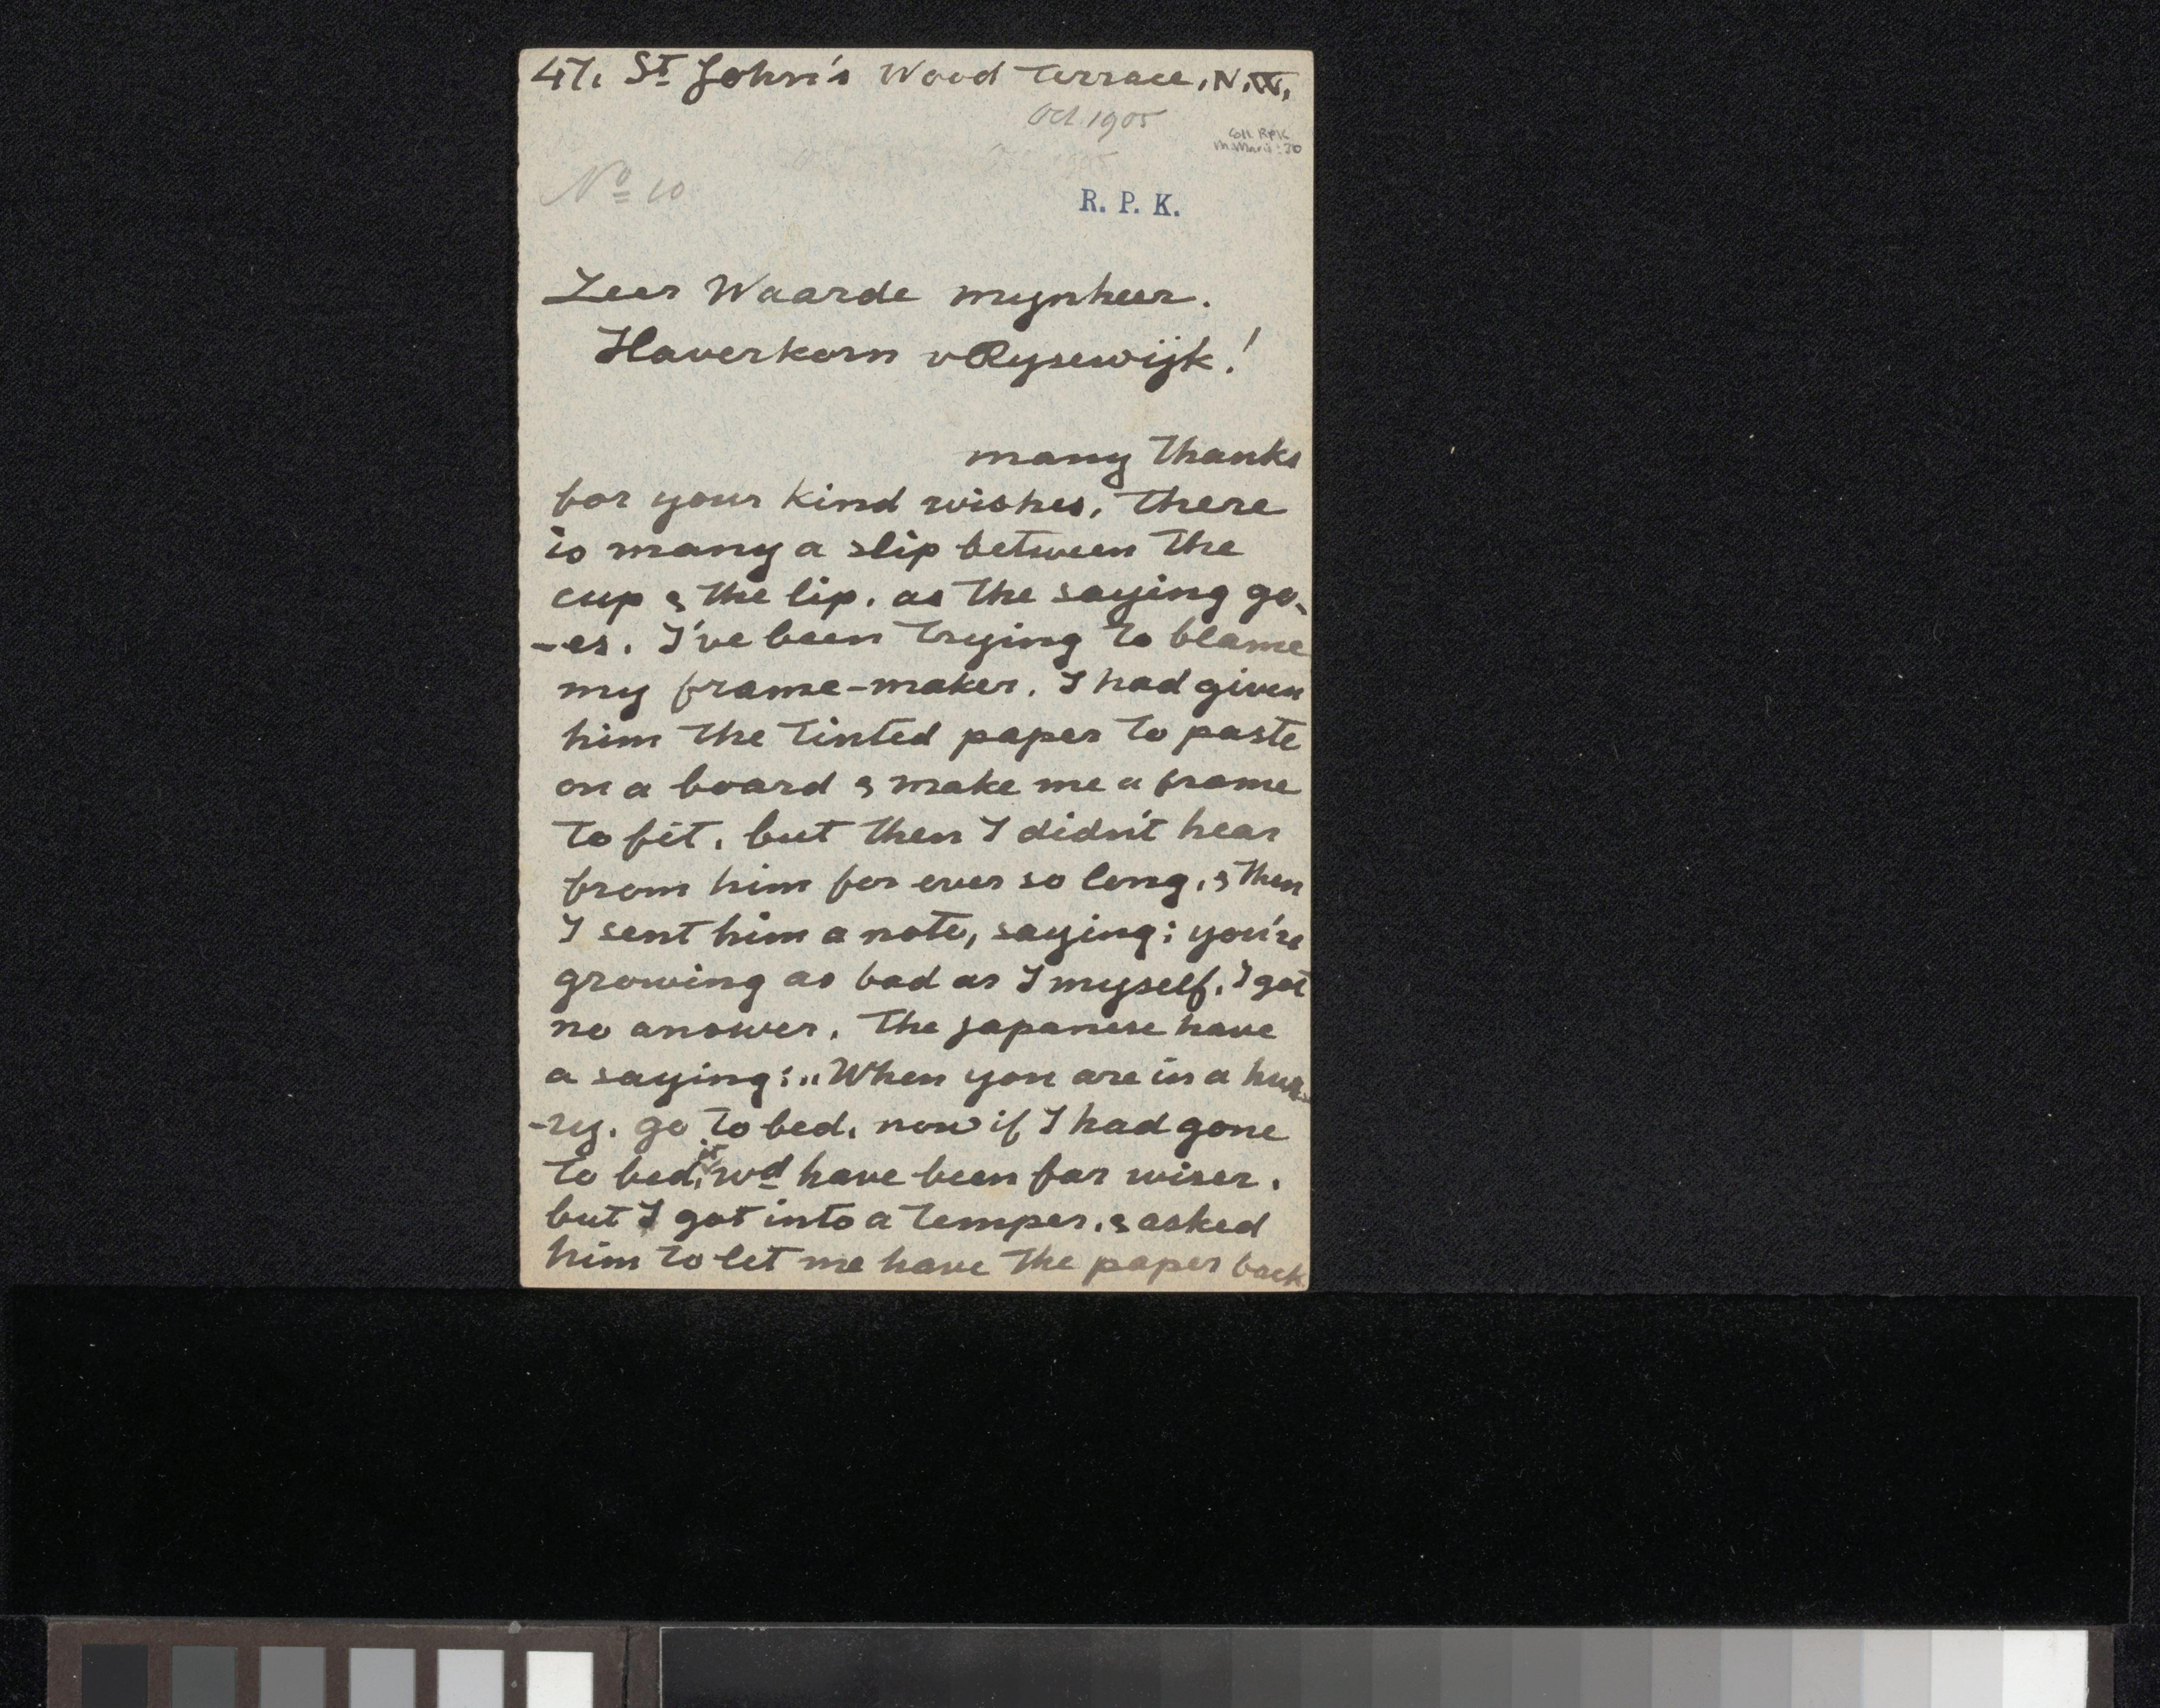 47. St John's Wood Terrace, N.W.
Oct. 1905
Coll. RPK
M. Maris: 30
No 10
R. P. K.
Zeer Waarde mynheer.
Haverkorn v Rysewijk!
many thanks
for your kind wishes, there
is many a slip between the
cup & the lip. as the saying go-
-es. I've been trying to blame
my frame-maker. I had given
him the tinted paper to paste
on a board & make me a frame
to fit. but then I didn't hear
from him for ever so long, & then
I sent him a note, saying: you're
growing as bad as I myself. I got
no answer. The japanese have
a saying: „When you are in a hur-
-ry. go to bed. now if I had gone
to bed, it wd have been far wiser.
but I got into a temper. & asked
him to let me have the paper back